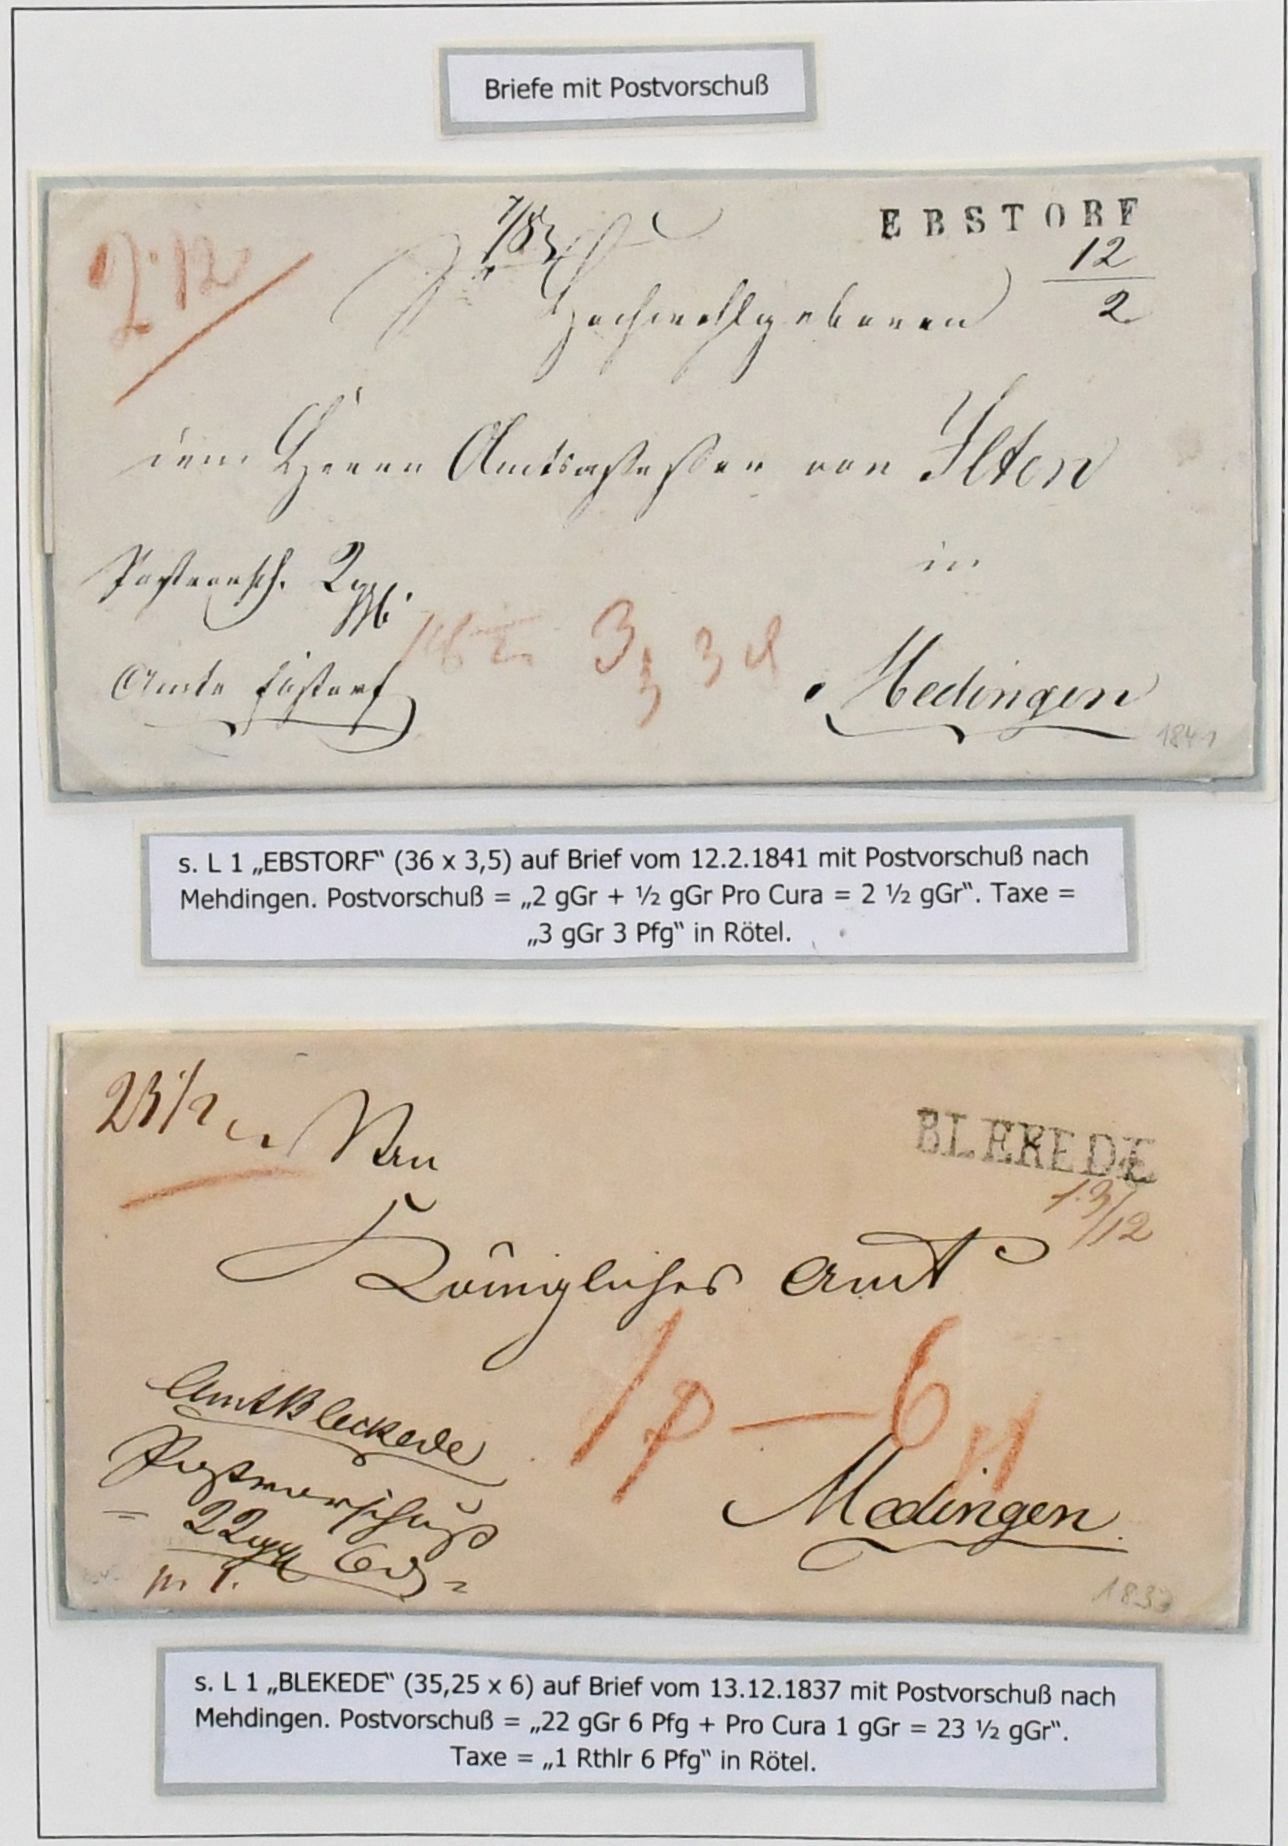 Briefe mit Postvorschuß
EBSTORF
12
2
Hochwohlgeboren
dem Herrn Amtsassessor von Ilten
in
Postvorsch. 2 ggr
Amts Ebstorf
3 3
Medingen
1841
s. L 1 „EBSTORF“ (36 x 3,5) auf Brief vom 12.2.1841 mit Postvorschuß nach
Mehdingen. Postvorschuß = „2 gGr + ½ gGr Pro Cura = 2 ½ gGr“. Taxe =
„3 gGr 3 Pfg“ in Rötel.
23 1/2
An
BLEKEDE
13/12
Königliches Amt
1 — 6
Amt Bleckede
Postvorschuß
= 22 ggr 6 d =
Medingen
1837
s. L 1 „BLEKEDE“ (35,25 x 6) auf Brief vom 13.12.1837 mit Postvorschuß nach
Mehdingen. Postvorschuß = „22 gGr 6 Pfg + Pro Cura 1 gGr = 23 ½ gGr“.
Taxe = „1 Rthlr 6 Pfg“ in Rötel.